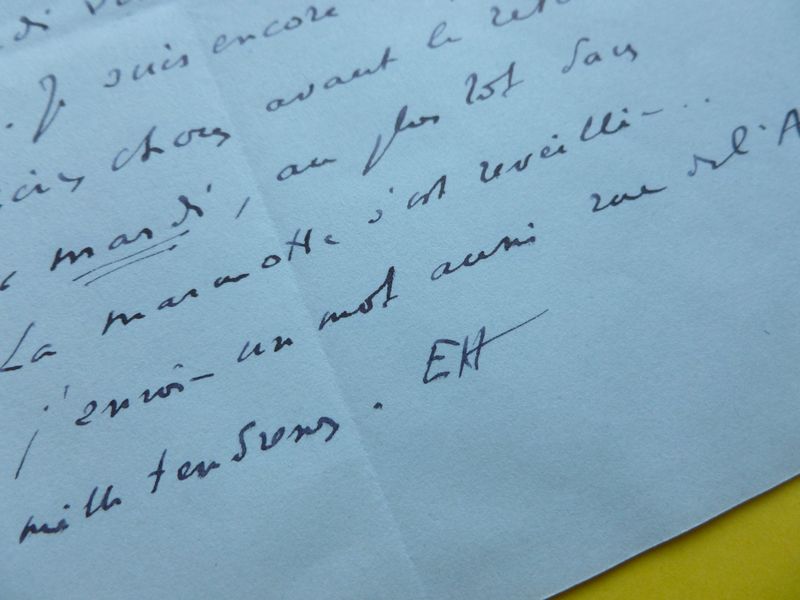 di
. Je suis encore
chous avant le reto
mardi, au plus tôt dans
La marmotte s'est réveillée...
j'envoie un mot aussi rue de l'A
mille tendresses. EH